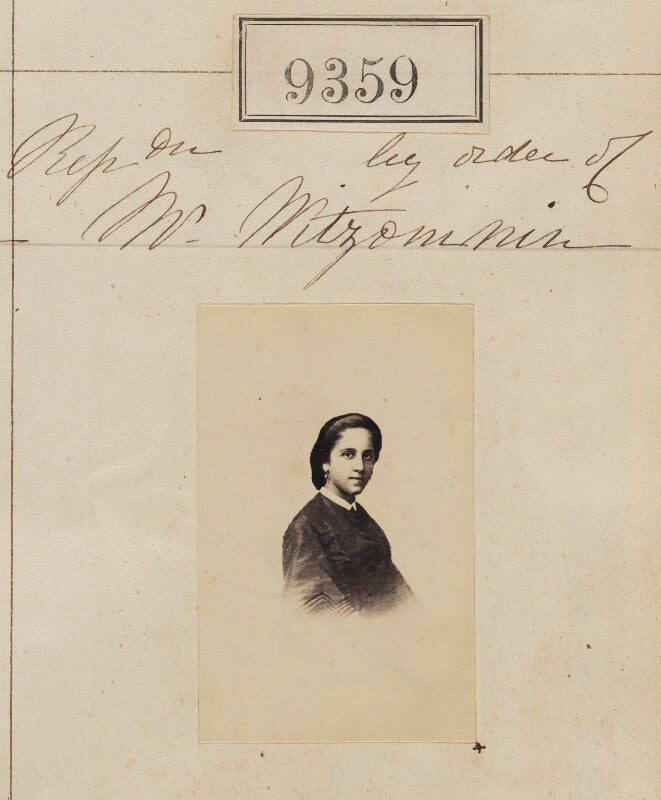 9359
Rep on by order of
Mr. Witzomnin